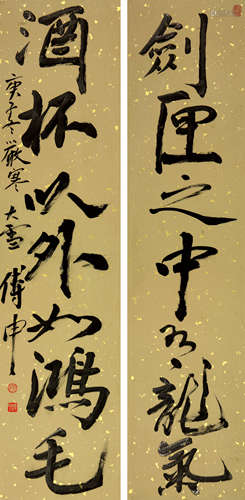 劍匣之中有龍氣
酒杯以外如鴻毛
庚子冬嚴寒大雪傅申